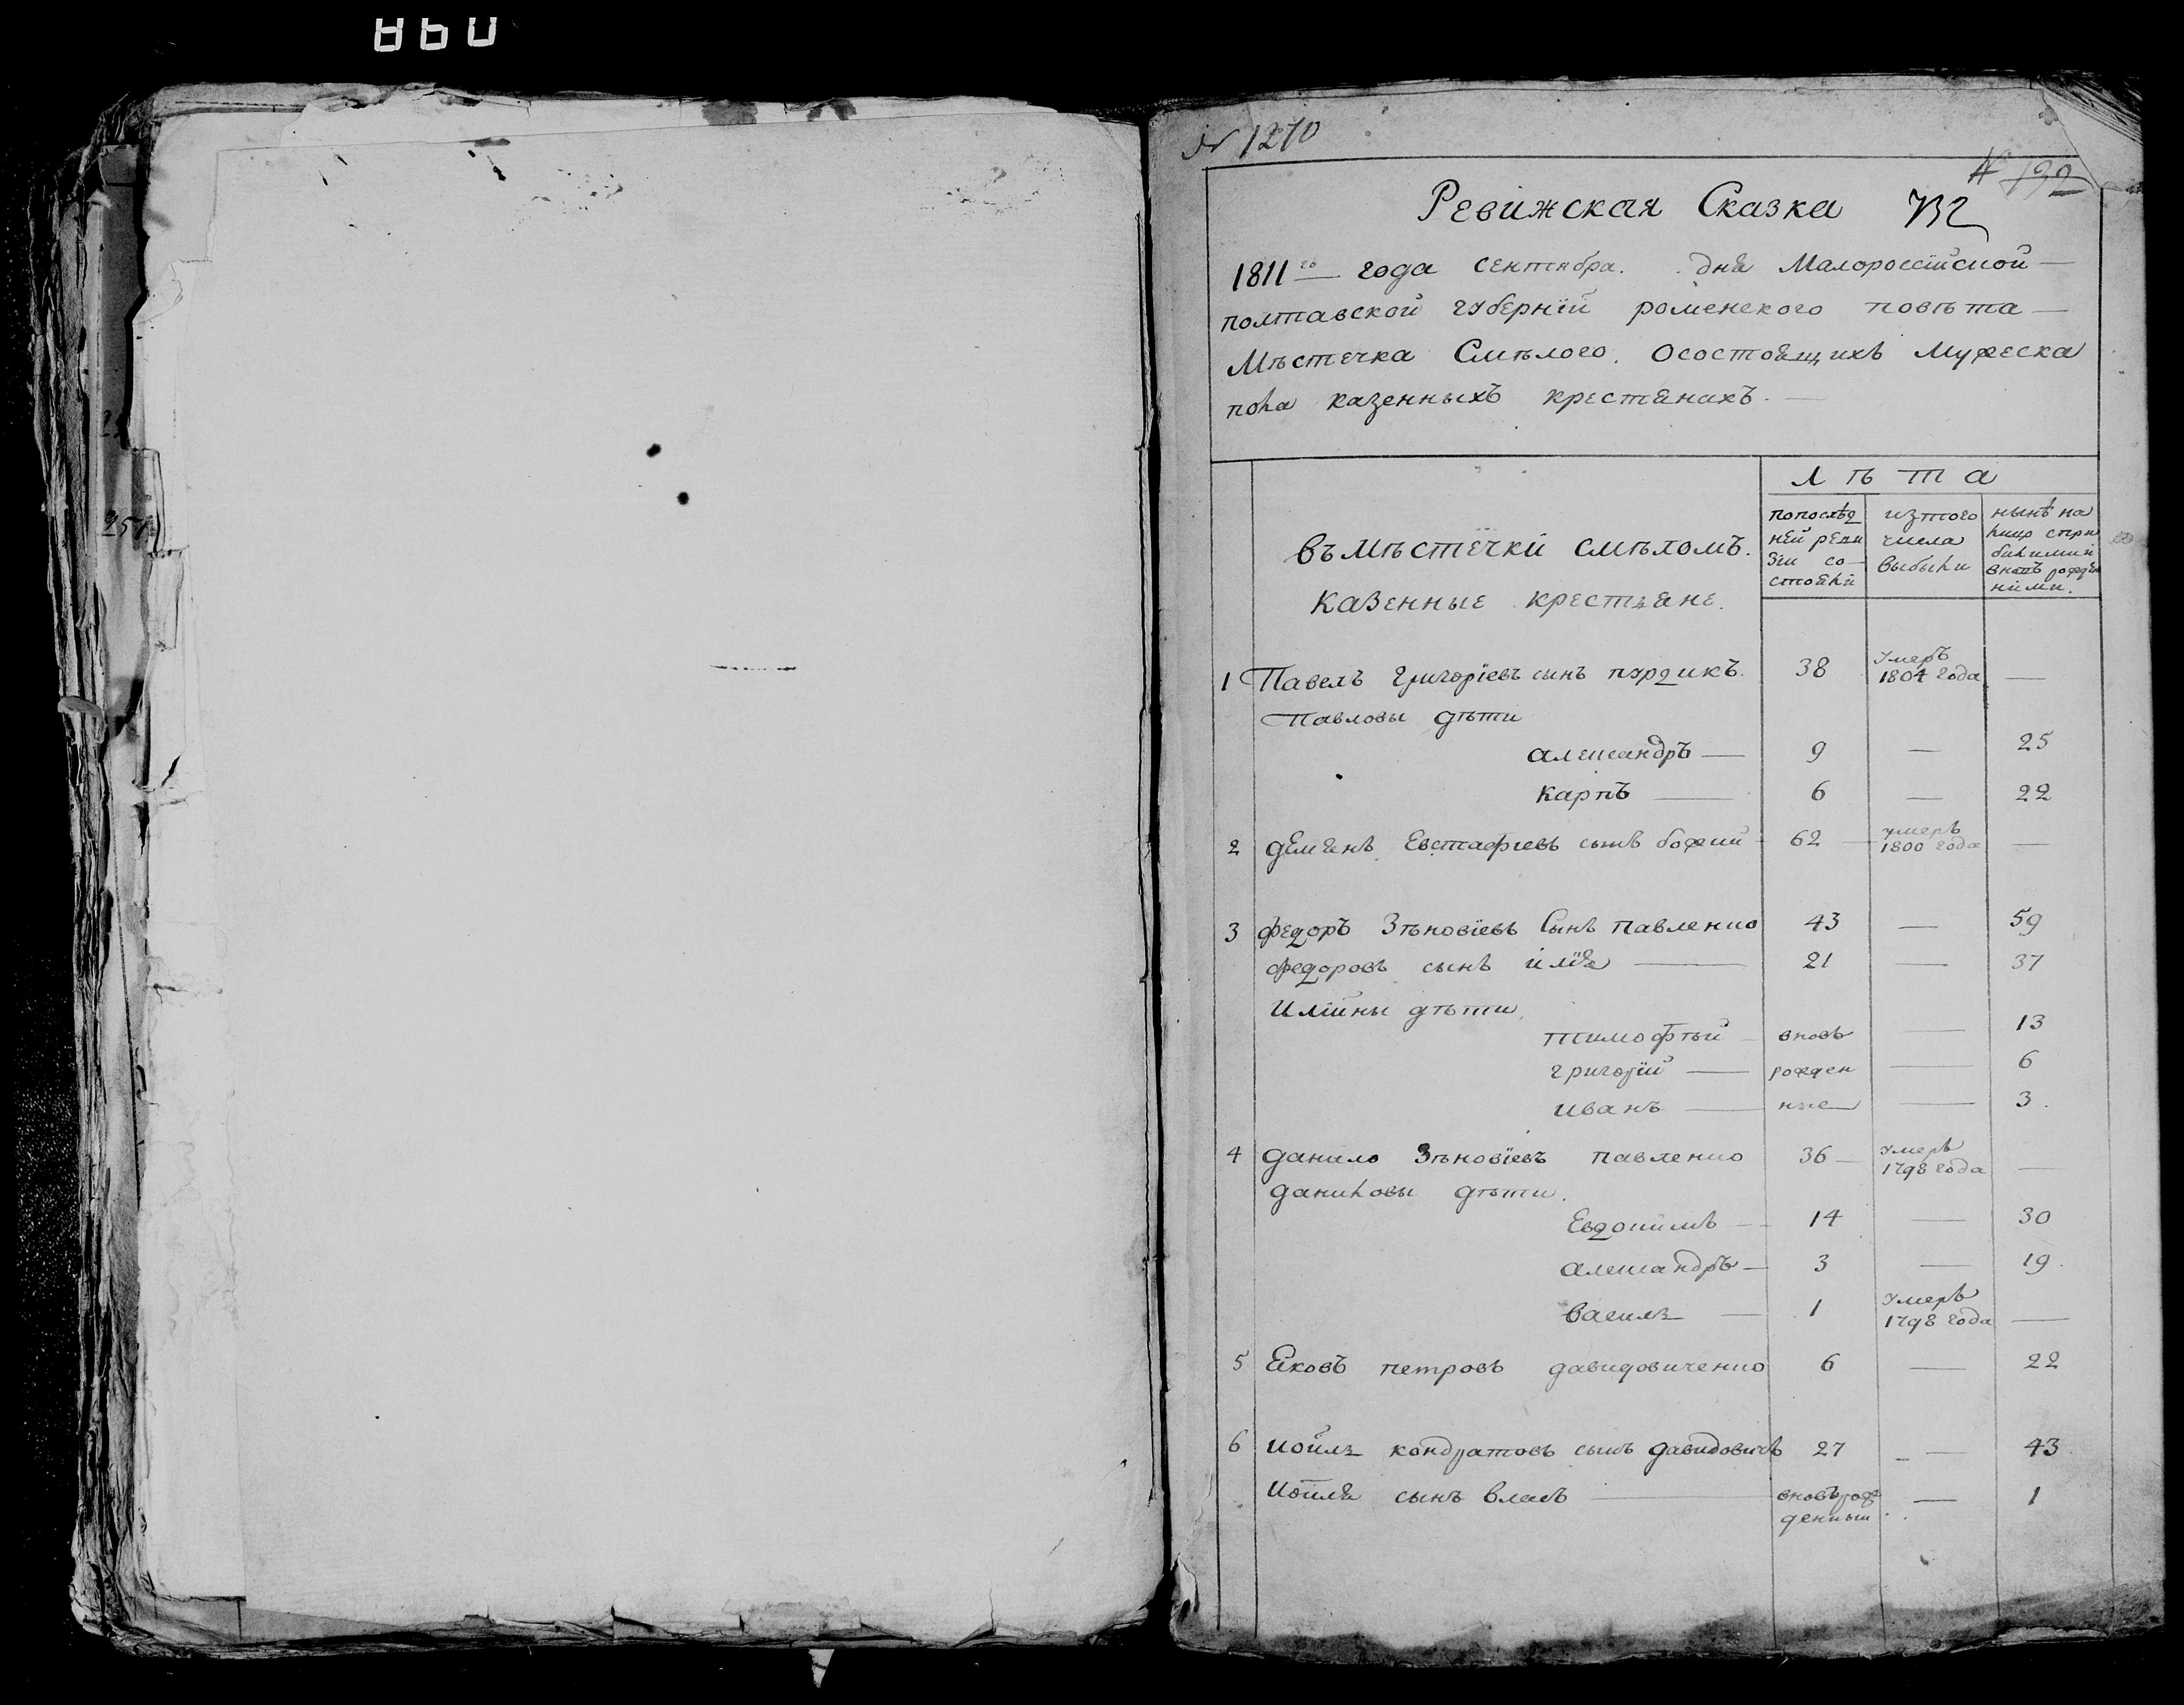 860
№ 1270
№ 192
Ревижская Сказка 732
1811го года сентября. дня Малороссїйской
полтавской губернїй роменского повѣта
Мѣстечка Смѣлого. Осостоящихъ мужеска
пола казенныхъ крестянахъ.
Лѣта
въмѣстечкй смѣломъ.
казенные крестьяне.
попослѣд
ней реви
зїи со
стояли
изтого
числа
выбыли
нынѣ на
лицо спри
былими й
вновъ рожден
ними.
1 Павелъ Григорїевъ сынъ пурдикъ. 38 Умеръ 1804 года —
Павловы дѣти
александръ — 9 — 25
карпъ — 6 — 22
2 демянъ Евстафиевъ сынъ божий 62 умеръ 1800 года —
3 федоръ Зѣновїевъ Сынъ павленко 43 — 59
федоровъ сынъ илїя — 21 — 37
Илїины дѣти
тимофѣй вновь — 13
григорїй — рожден — 6
иванъ — ные — 3.
4 данило Зѣновїевъ павленко 36 Умеръ 1798 года —
даниловы дѣти.
Евдокимъ — 14 — 30
александръ — 3 — 19.
василь — 1 Умеръ 1798 года —
5 Яковъ петровъ давидовиченко 6 — 22
6 иоиль кондратовъ сынъ давидовичъ 27 — 43
Иоиля сынъ власъ — вновърож — 1
денныи
257